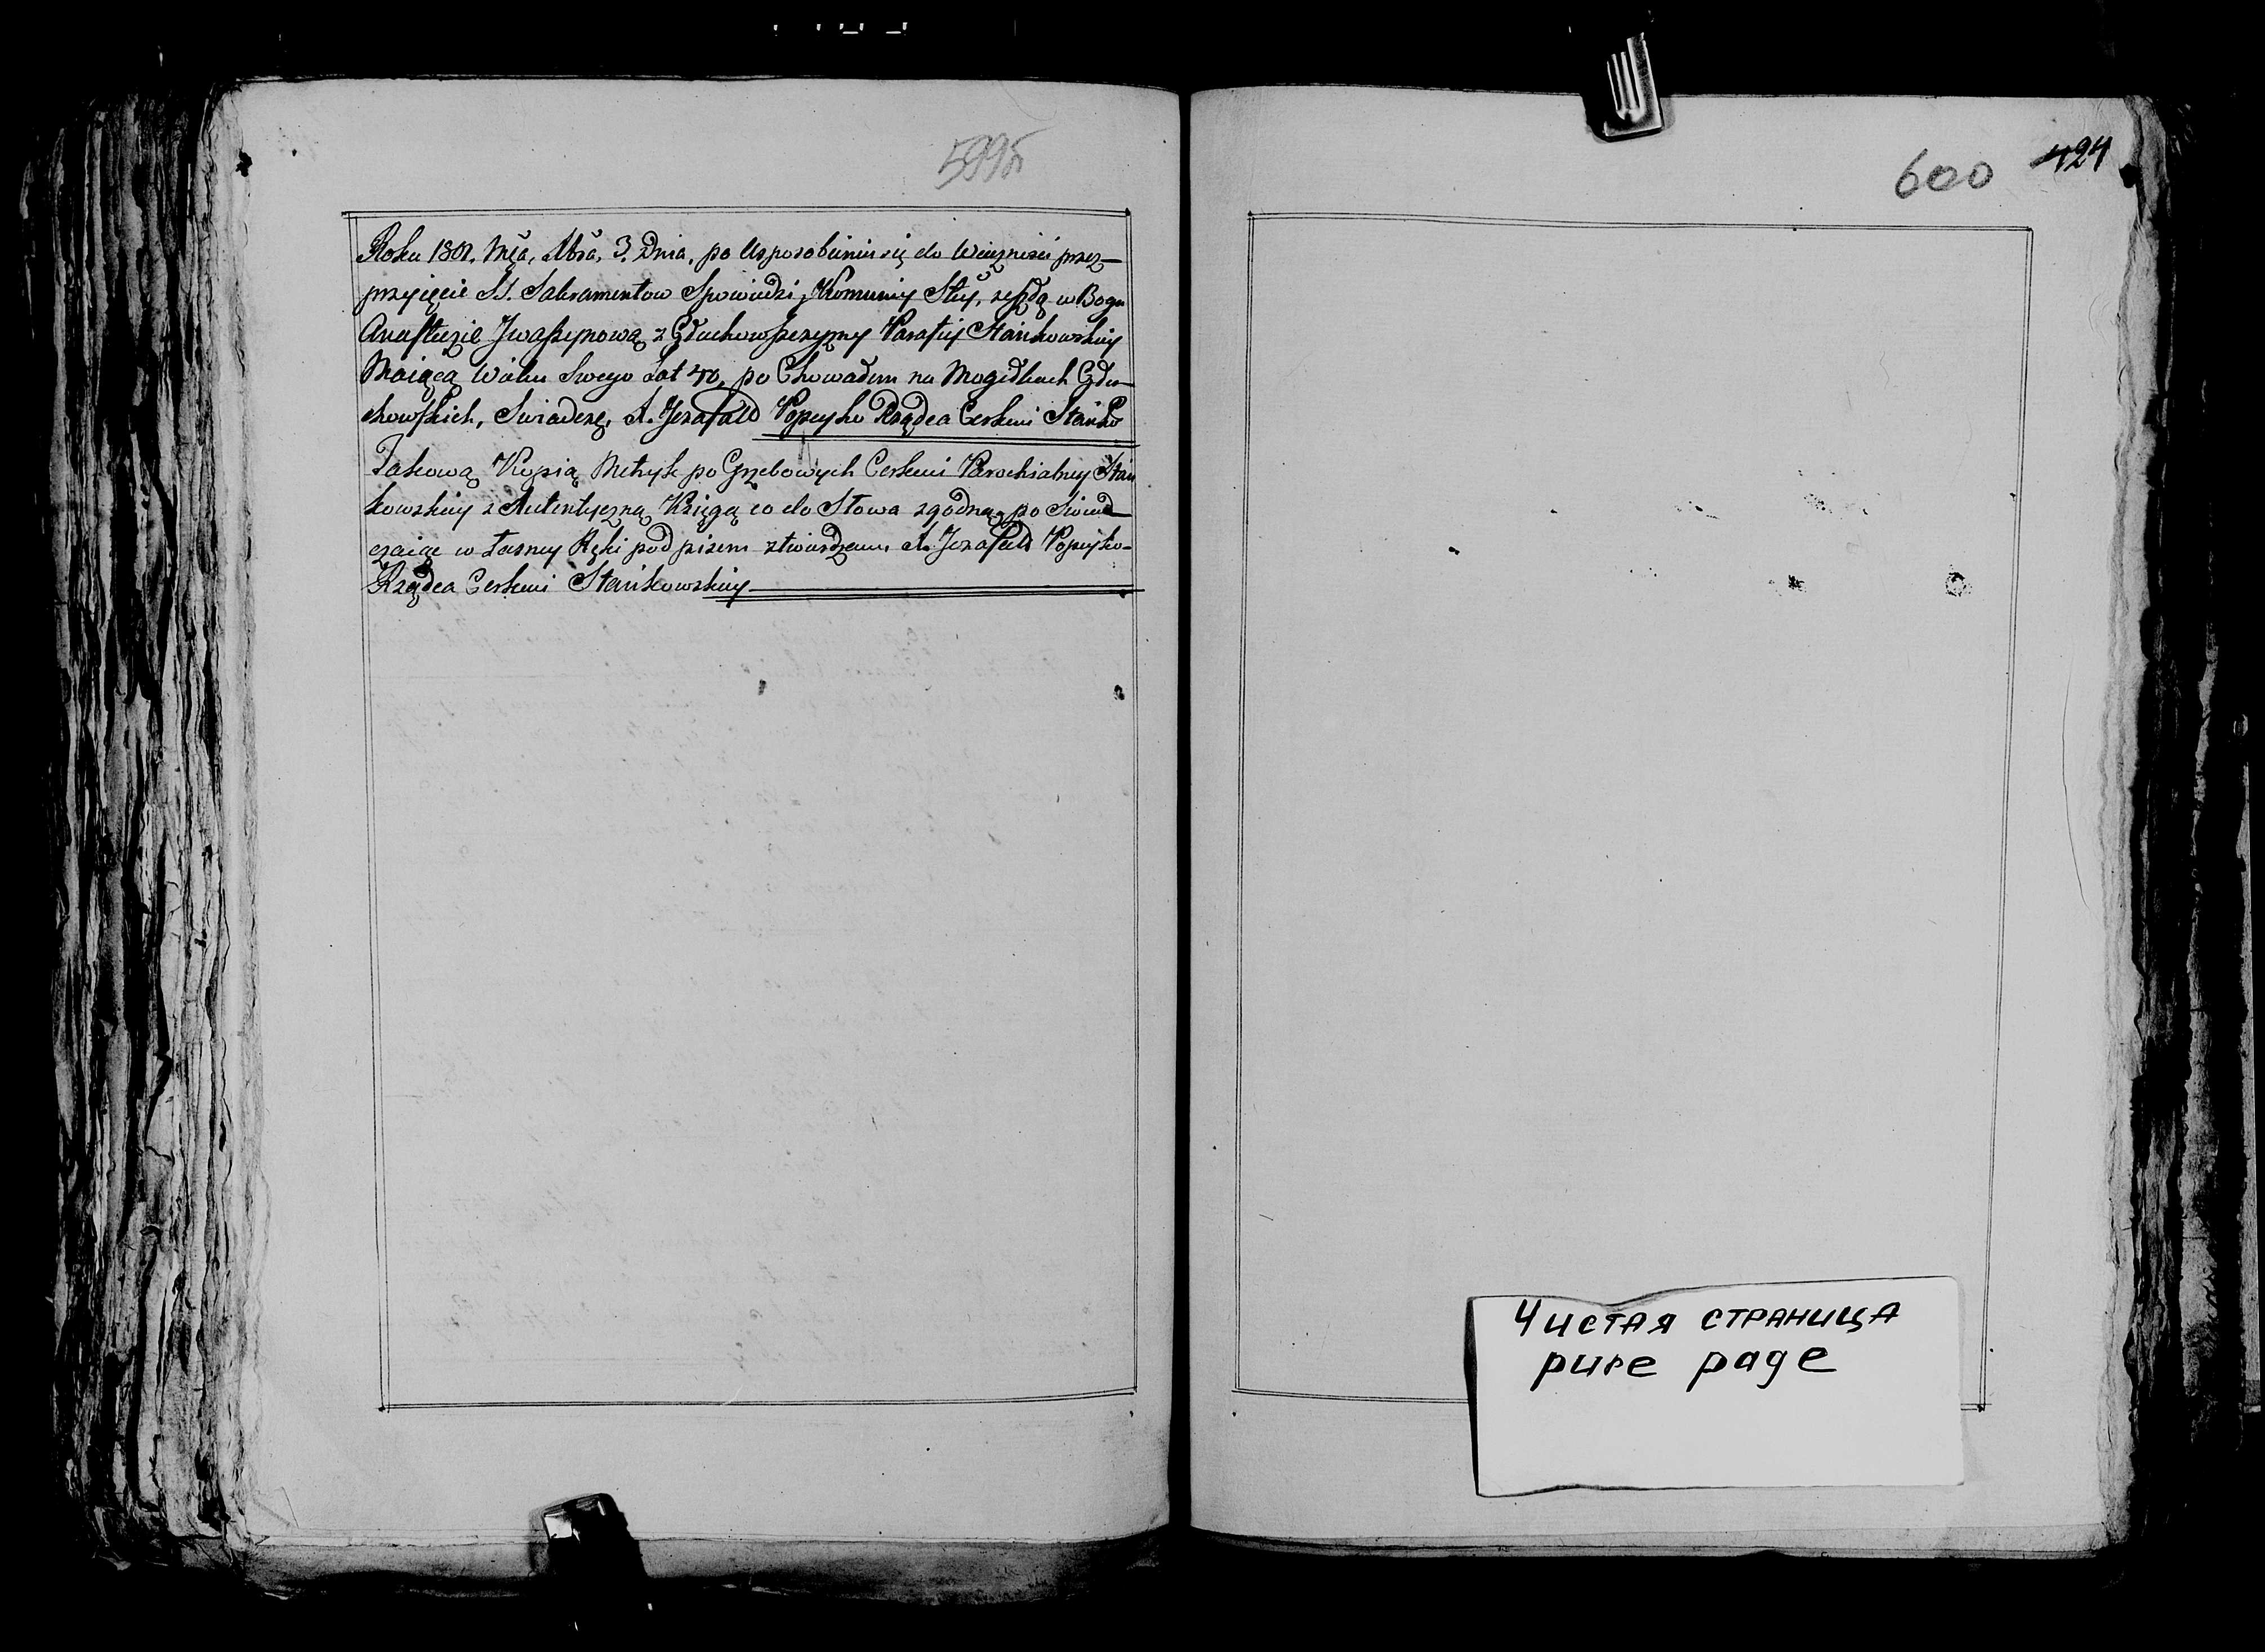 599б
Roku 1801, Mca, Xbra, 3. Dnia, po Usposobieniu się do Wieczności przez
przyięcie SS. Sakramentow Spowiedzi, Kommuniy Stey, zeszłą w Bogu
Anastazię Jwaszynową z Głuchowszczyzny Parafiy Stańkowskiey
Maiącą Wieku Swego Lat 40, po Chowałem na Mogiłkach Głu-
chowskich, Swiadczę, X. Jozafald Popeyko Rządca Cerkwi Stańko
Takową Kopią Metryk po Grzebowych Cerkwi Parochialney Stań
kowskiey z Autentyczną Księgą co do Słowa zgodną, po Swiad
czaiąc w łasney Ręki pod pisem ztwierdzam X. Jozafald Popeyko-
Rządca Cerkwi Stańkowskiey
600
424
Чистая страница
pure page